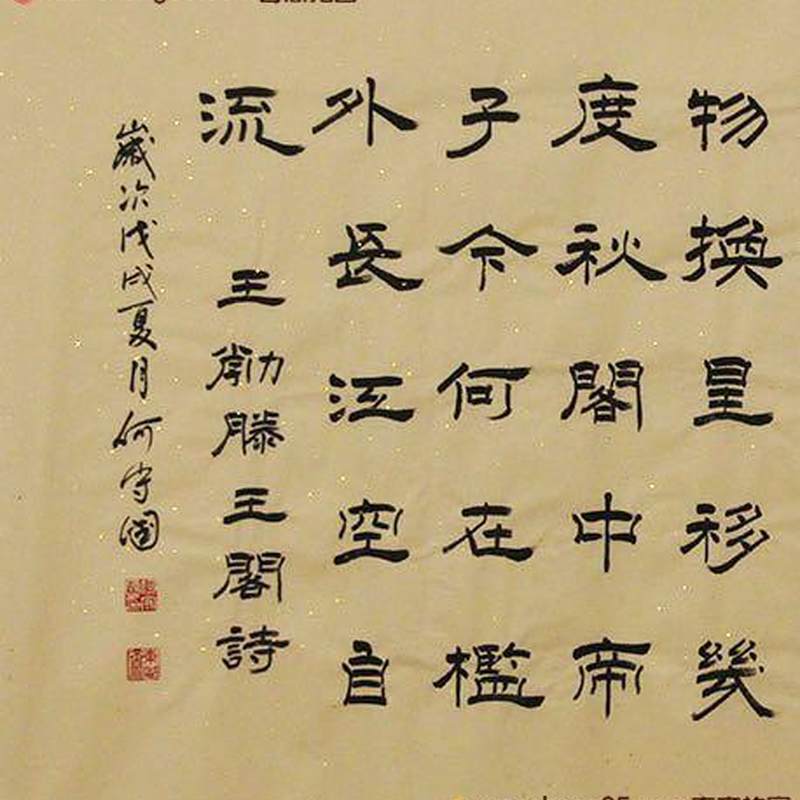 物換星移幾
度秋閣中帝
子今何在檻
外長江空自
流
王勃滕王閣詩
歲次戊戌夏月何守國